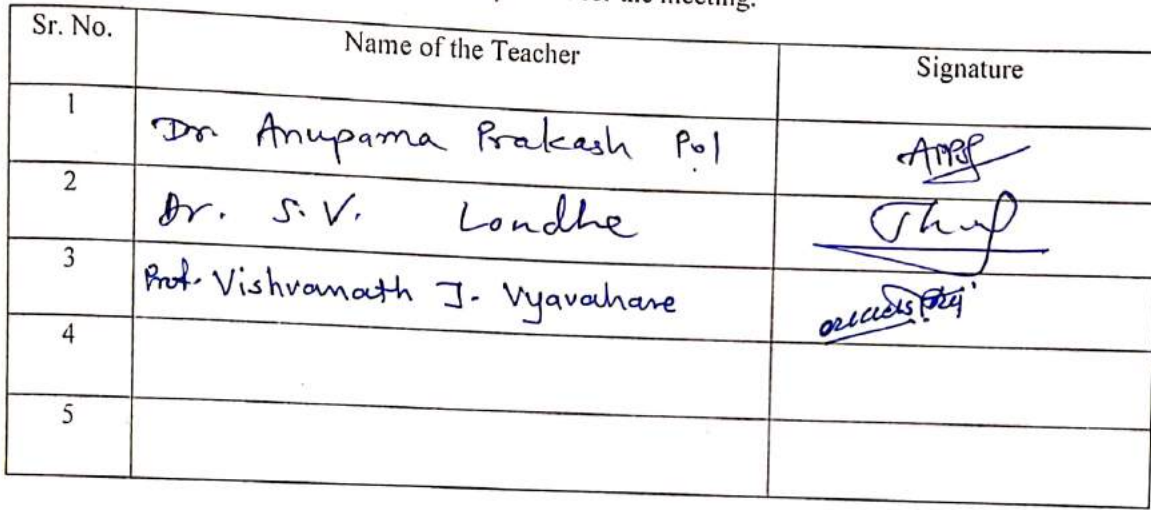 the meeting.
Sr. No. Name of the Teacher Signature
1 Dr Anupama Prakash Pol
2 Dr. S. V. Londhe
3 Prof. Vishvanath J. Vyavahare
4
5